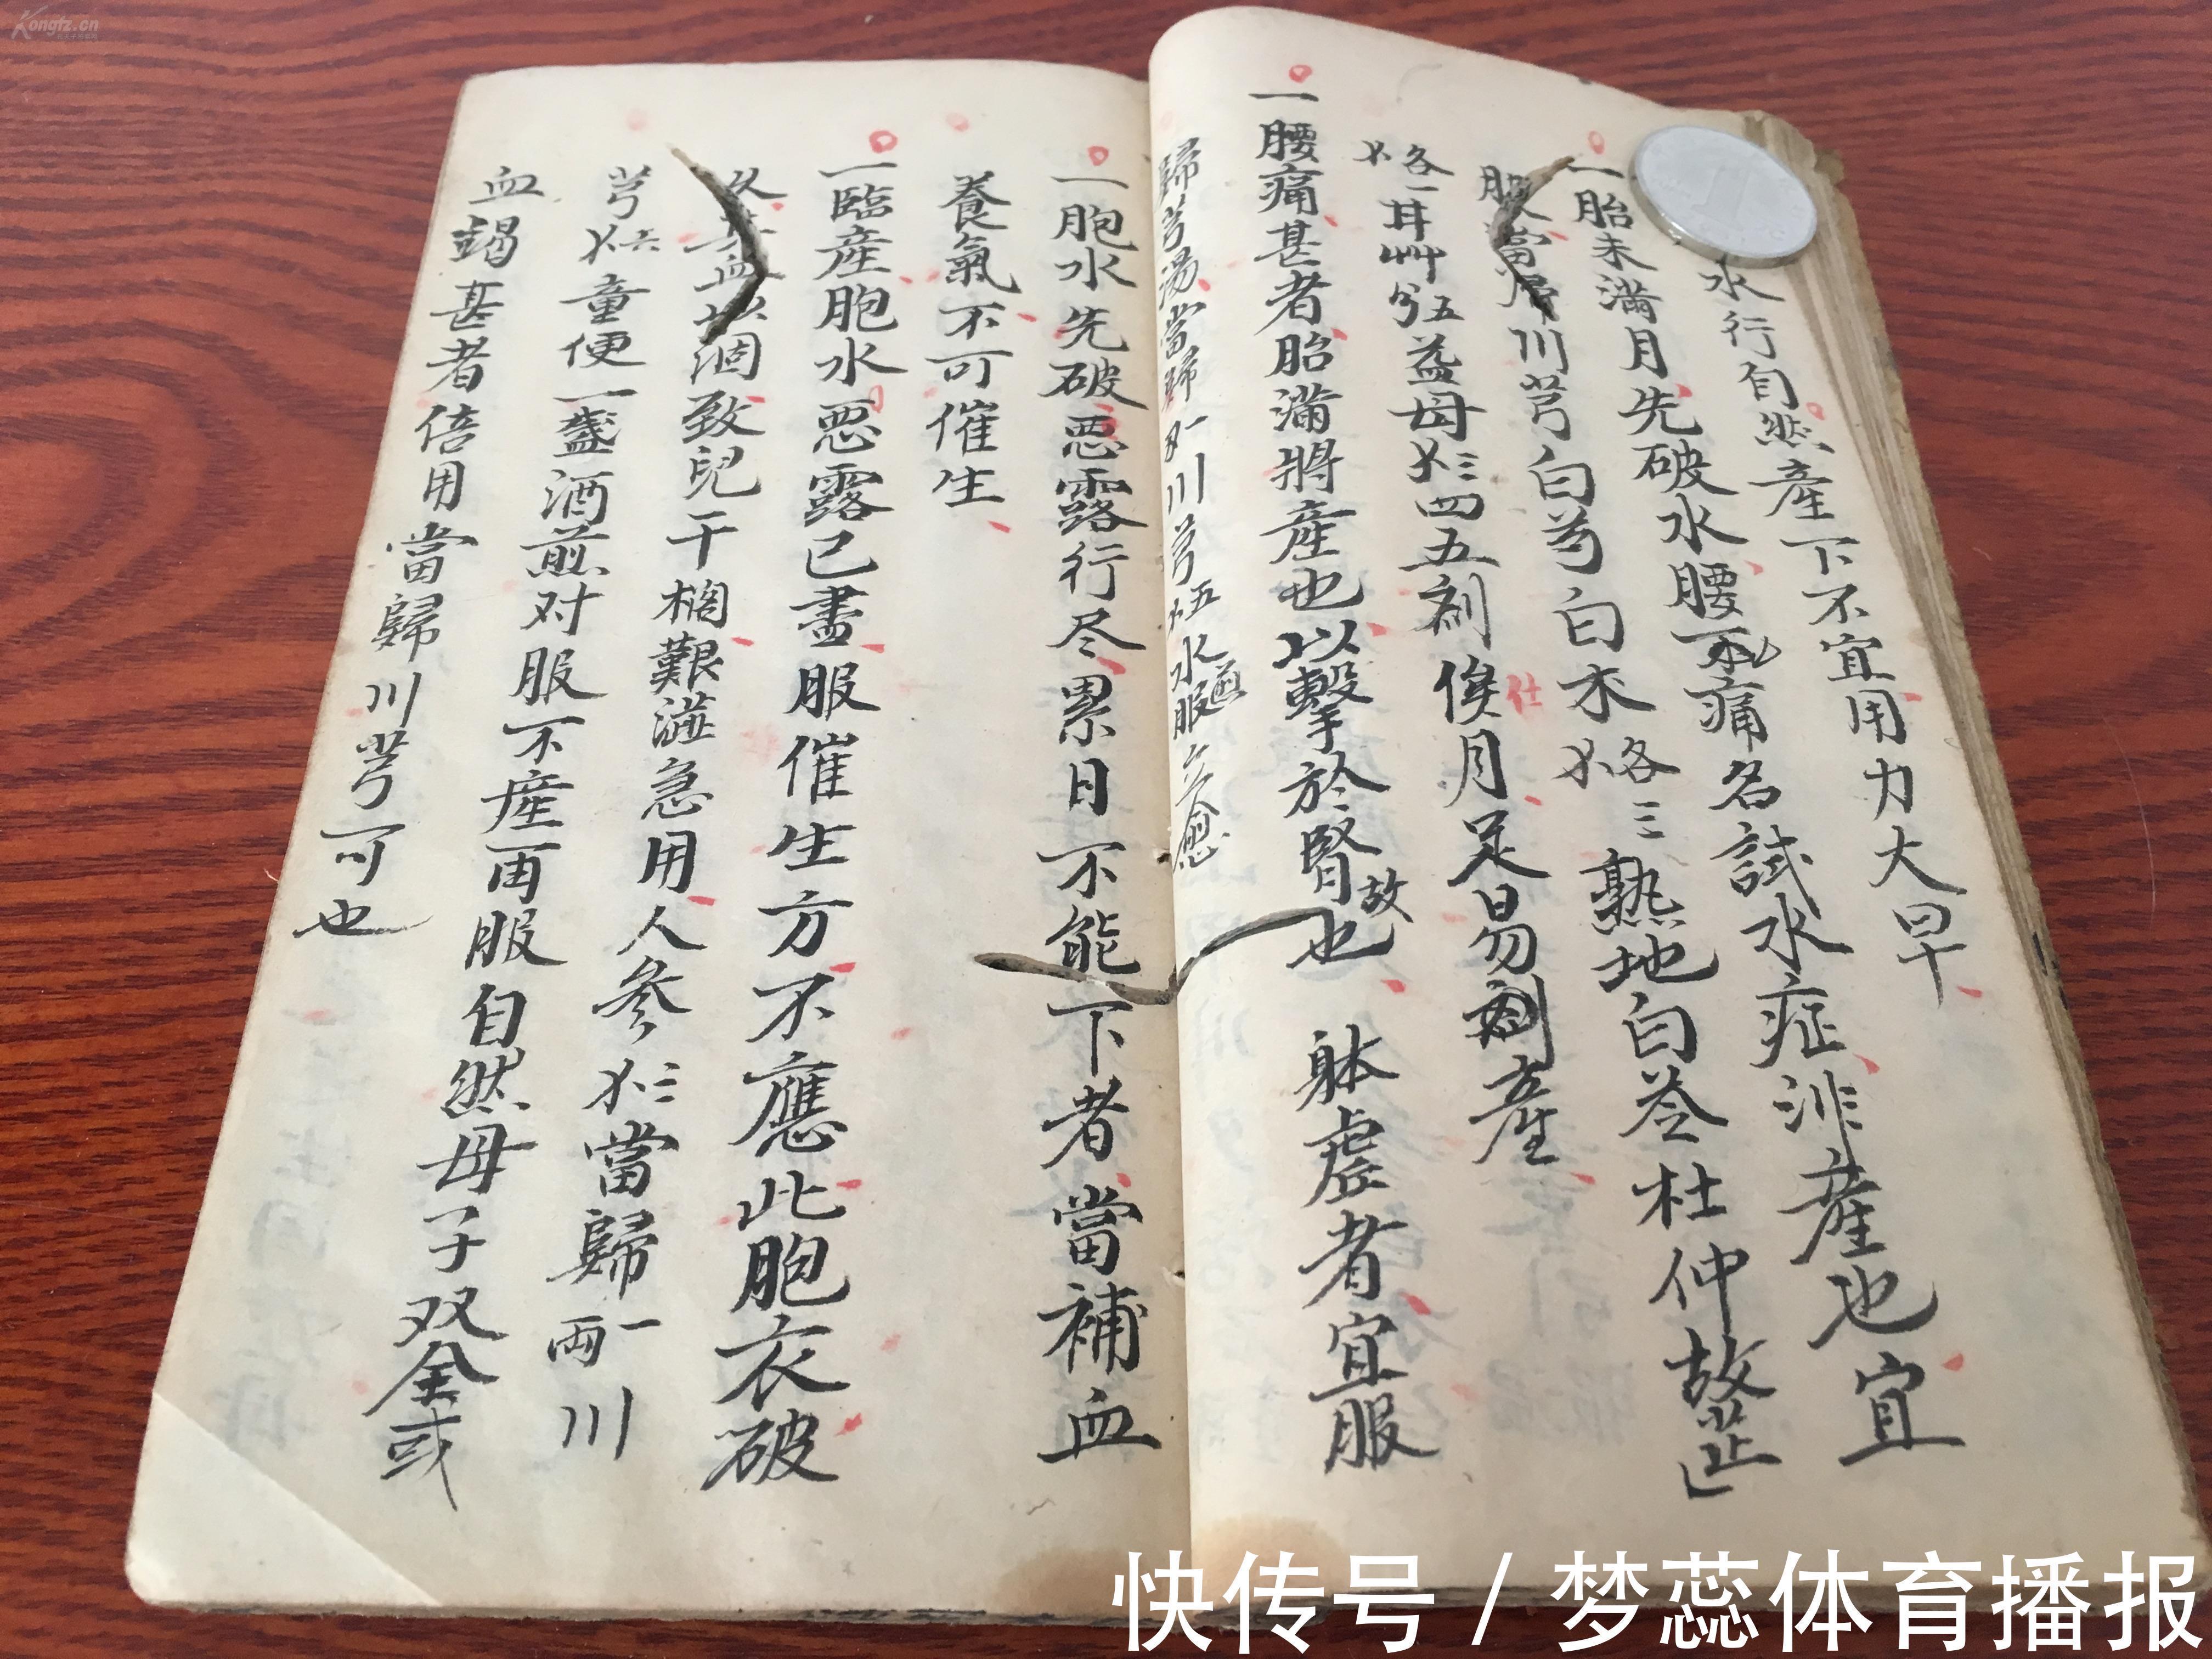 水行自然產下不宜用力大早
一胎未滿月先破水腰不痛名試水症非產也宜
服當歸川芎白芍白朮各三熟地白苓杜仲故芷
各一甘艸五益母三四五劑俟月足易產
一腰痛甚者胎滿將產也以擊於腎故也 躰虛者宜服
歸芎湯當歸一川芎五水煎服立愈
一胞水先破惡露行尽累日不能下者當補血
養氣不可催生
一臨產胞水惡露已盡服催生方不應此胞衣破
久血涸致兒干 艱澁急用人參三當歸一両川
芎六童便一盞酒煎对服不產再服自然母子双全或
血竭甚者倍用當歸川芎可也
Kongfz.cn
快传号 / 梦蕊体育播报